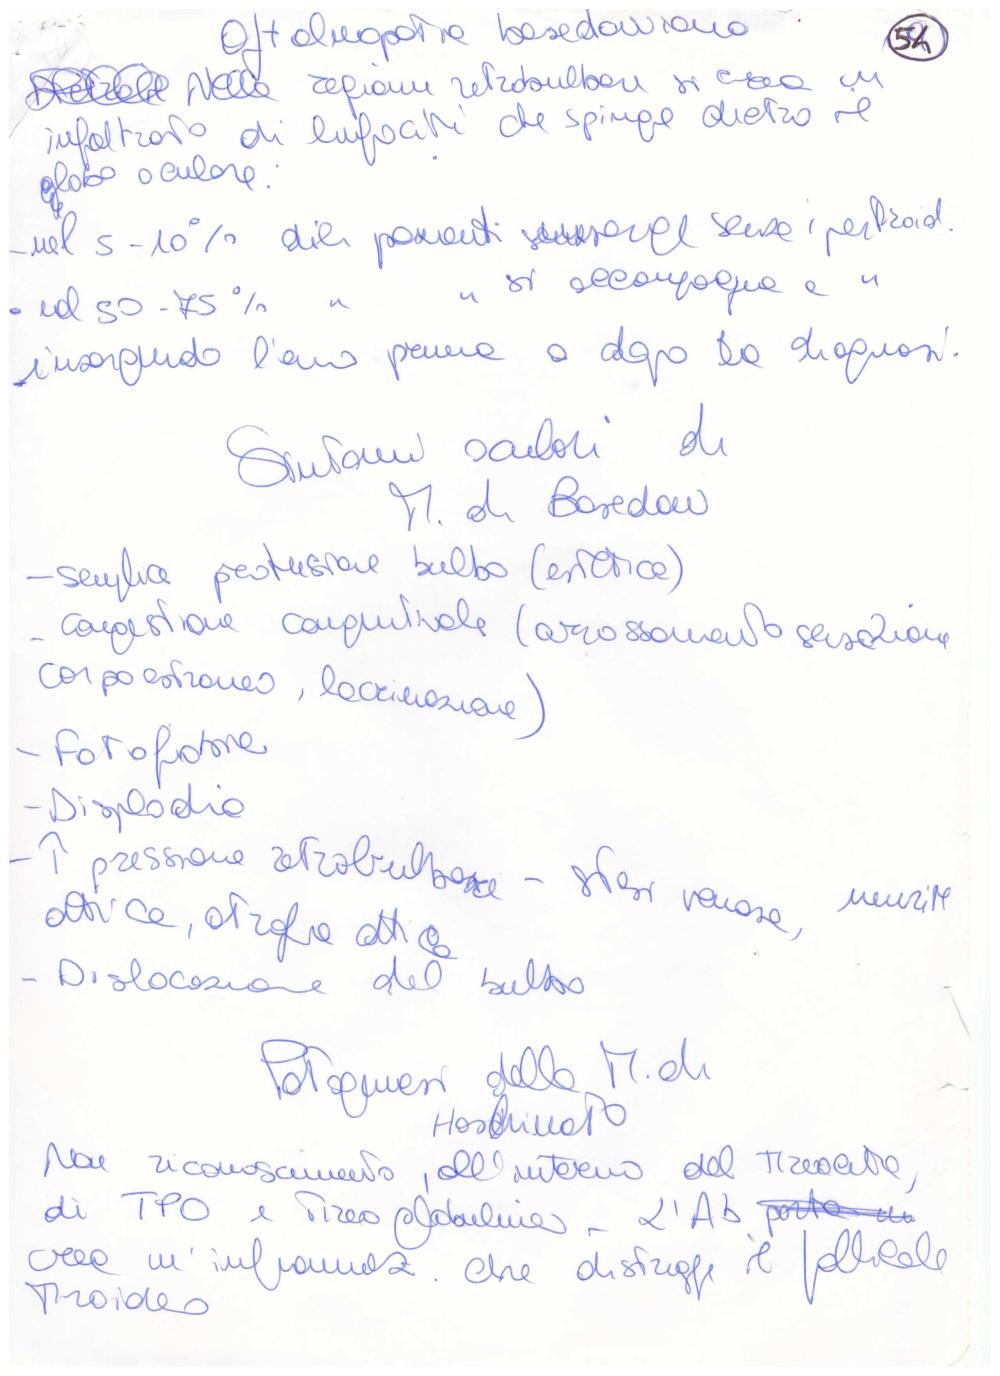 Oftalmopatia basedowiana
54
Nella regione retrobulbare si crea un
infiltrato di linfociti che spinge dietro il
globo oculare:
- nel 5-10% dei pazienti senza ipertiroid.
• nel 50-75% " " si accompagna a "
insorgendo l'anno prima o dopo la diagnosi.
Sintomi oculari di
M. di Basedow
- semplice protrusione bulbo (estetica)
- congestione congiuntivale (arrossamento sensazione
corpo estraneo, lacrimazione)
- Fotofobia
- Displodia
- ↑ pressione retrobulbare - stasi venosa, neurite
ottica, atrofia ottica
- Dislocazione del bulbo
Patogenesi della M. di
Hashimoto
Non riconoscimento, all'interno del tireocita,
di TPO e Tireoglobulina - L'Ab
crea un'infiammaz. che distrugge il follicolo
Tiroideo